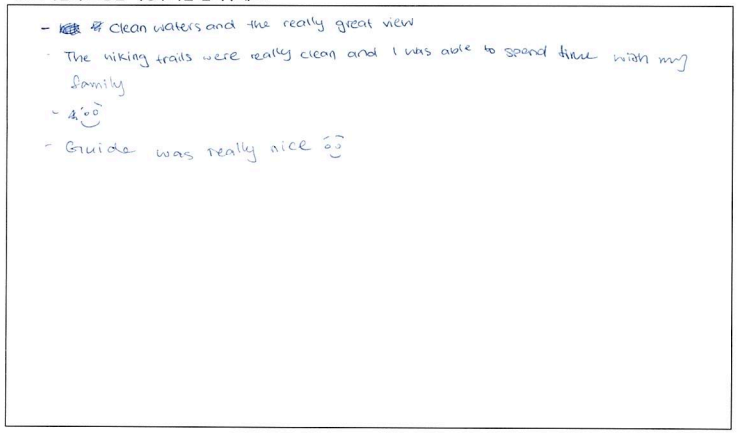 - Clean waters and the really great view
- The hiking trails were really clean and I was able to spend time with my
family
-
- Guide was really nice